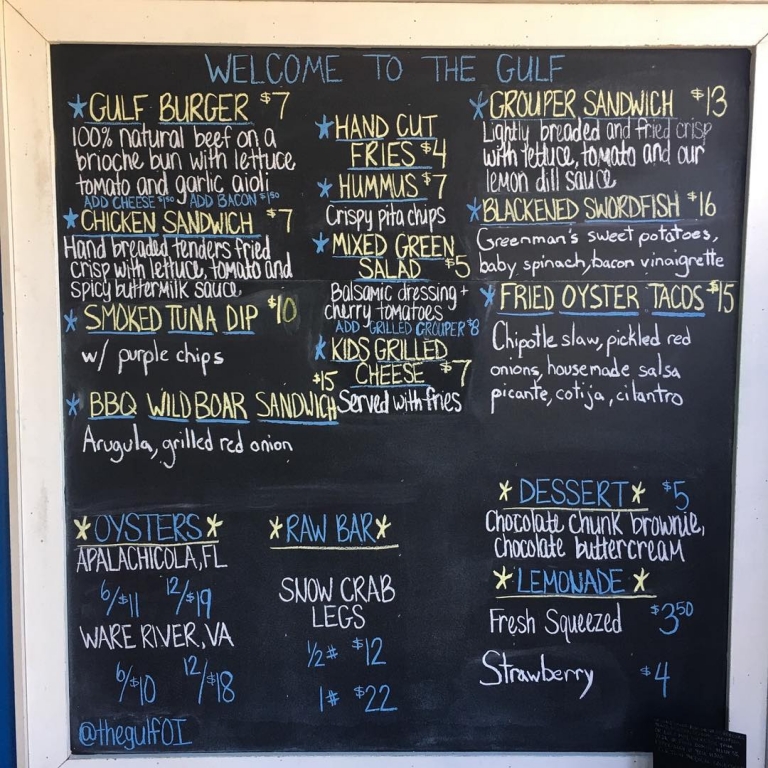 WELCOME TO THE GULF
GULF BURGER $7
100% natural beef on a
brioche bun with lettuce
tomato and garlic aioli
ADD CHEESE $1.50 ADD BACON $1.50
CHICKEN SANDWICH $7
Hand breaded tenders fried
crisp with lettuce, tomato and
spicy buttermilk sauce
SMOKED TUNA DIP $10
w/ purple chips
$15
BBQ WILD BOAR SANDWICH
Arugula, grilled red onion
HAND CUT
FRIES $4
HUMMUS $7
Crispy pita chips
MIXED GREEN
SALAD $5
Balsamic dressing +
cherry tomatoes
ADD GRILLED GROUPER $8
KIDS GRILLED
CHEESE $7
Served with fries
GROUPER SANDWICH $13
Lightly breaded and fried crisp
with lettuce, tomato and our
lemon dill sauce
BLACKENED SWORDFISH $16
Greenman's sweet potatoes,
baby spinach, bacon vinaigrette
FRIED OYSTER TACOS $15
Chipotle slaw, pickled red
onions, housemade salsa
picante, cotija, cilantro
OYSTERS
APALACHICOLA, FL
6/$11 12/$19
WARE RIVER, VA
6/$10 12/$18
@thegulfOI
RAW BAR
SNOW CRAB
LEGS
1/2# $12
1# $22
DESSERT $5
Chocolate chunk brownie,
chocolate buttercream
LEMONADE
Fresh Squeezed $3.50
Strawberry $4